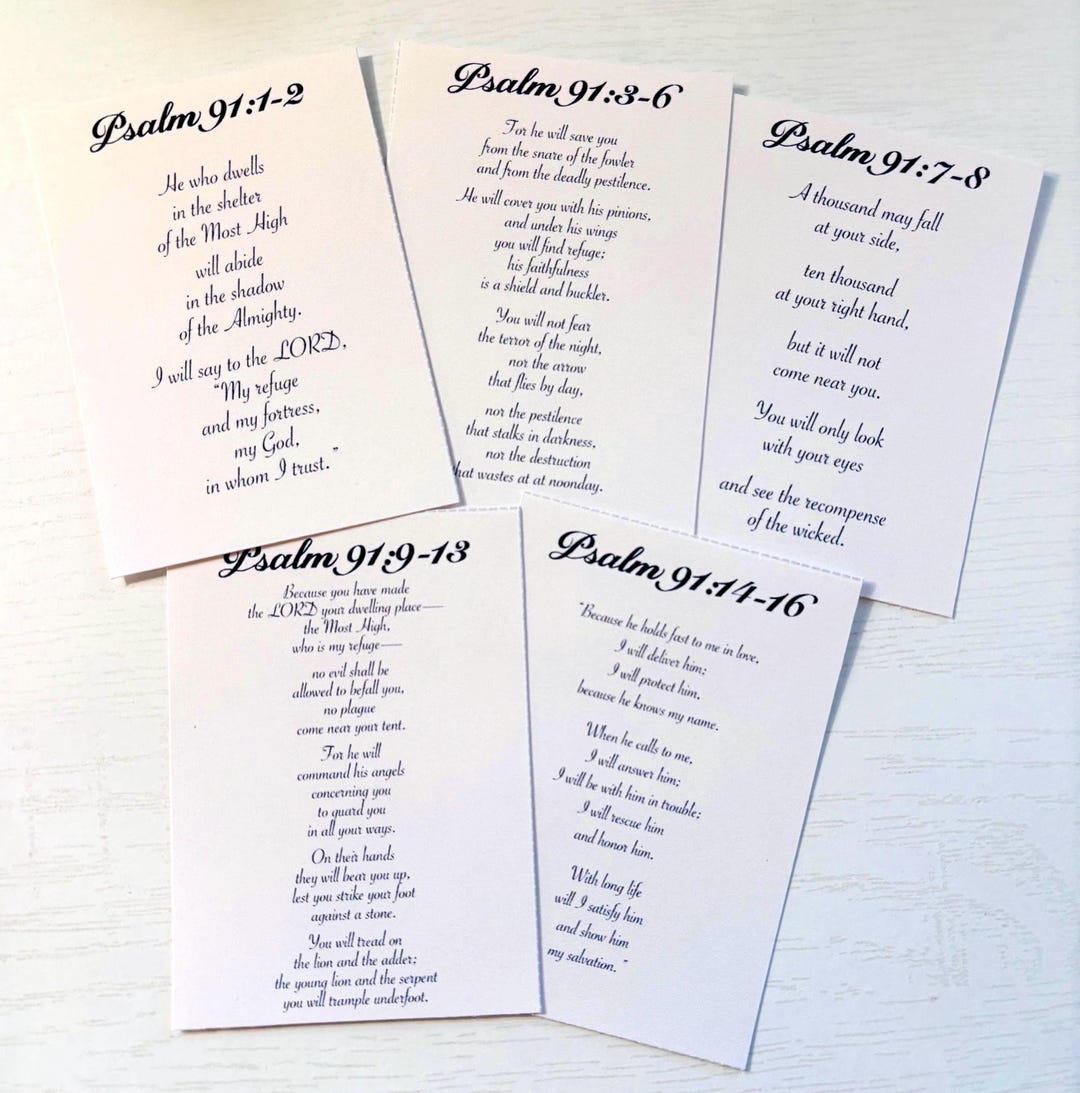 Psalm 91:1-2
He who dwells
in the shelter
of the Most High
will abide
in the shadow
of the Almighty.
I will say to the LORD,
“My refuge
and my fortress,
my God,
in whom I trust.”
Psalm 91:3-6
For he will save you
from the snare of the fowler
and from the deadly pestilence.
He will cover you with his pinions,
and under his wings
you will find refuge;
his faithfulness
is a shield and buckler.
You will not fear
the terror of the night,
nor the arrow
that flies by day,
nor the pestilence
that stalks in darkness,
nor the destruction
that wastes at at noonday.
Psalm 91:7-8
A thousand may fall
at your side,
ten thousand
at your right hand,
but it will not
come near you.
You will only look
with your eyes
and see the recompense
of the wicked.
Psalm 91:9-13
Because you have made
the LORD your dwelling place—
the Most High,
who is my refuge—
no evil shall be
allowed to befall you,
no plague
come near your tent.
For he will
command his angels
concerning you
to guard you
in all your ways.
On their hands
they will bear you up,
lest you strike your foot
against a stone.
You will tread on
the lion and the adder;
the young lion and the serpent
you will trample underfoot.
Psalm 91:14-16
“Because he holds fast to me in love,
I will deliver him;
I will protect him,
because he knows my name.
When he calls to me,
I will answer him;
I will be with him in trouble;
I will rescue him
and honor him.
With long life
will I satisfy him
and show him
my salvation.”